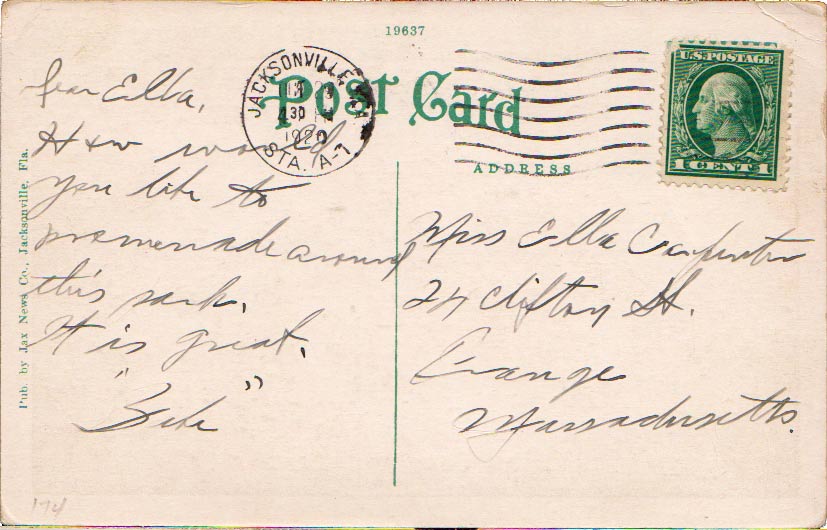 19637
Post Card
JACKSONVILLE
430
1920
STA. A-1
U.S. POSTAGE
1 CENT 1
ADDRESS
Dear Ella,
How would
you like to
promenade around
this park.
It is great.
"Zeke"
Miss Ella Carpenter
24 Clifton St.
Orange
Massachusetts.
Pub. by Jax News Co., Jacksonville, Fla.
174